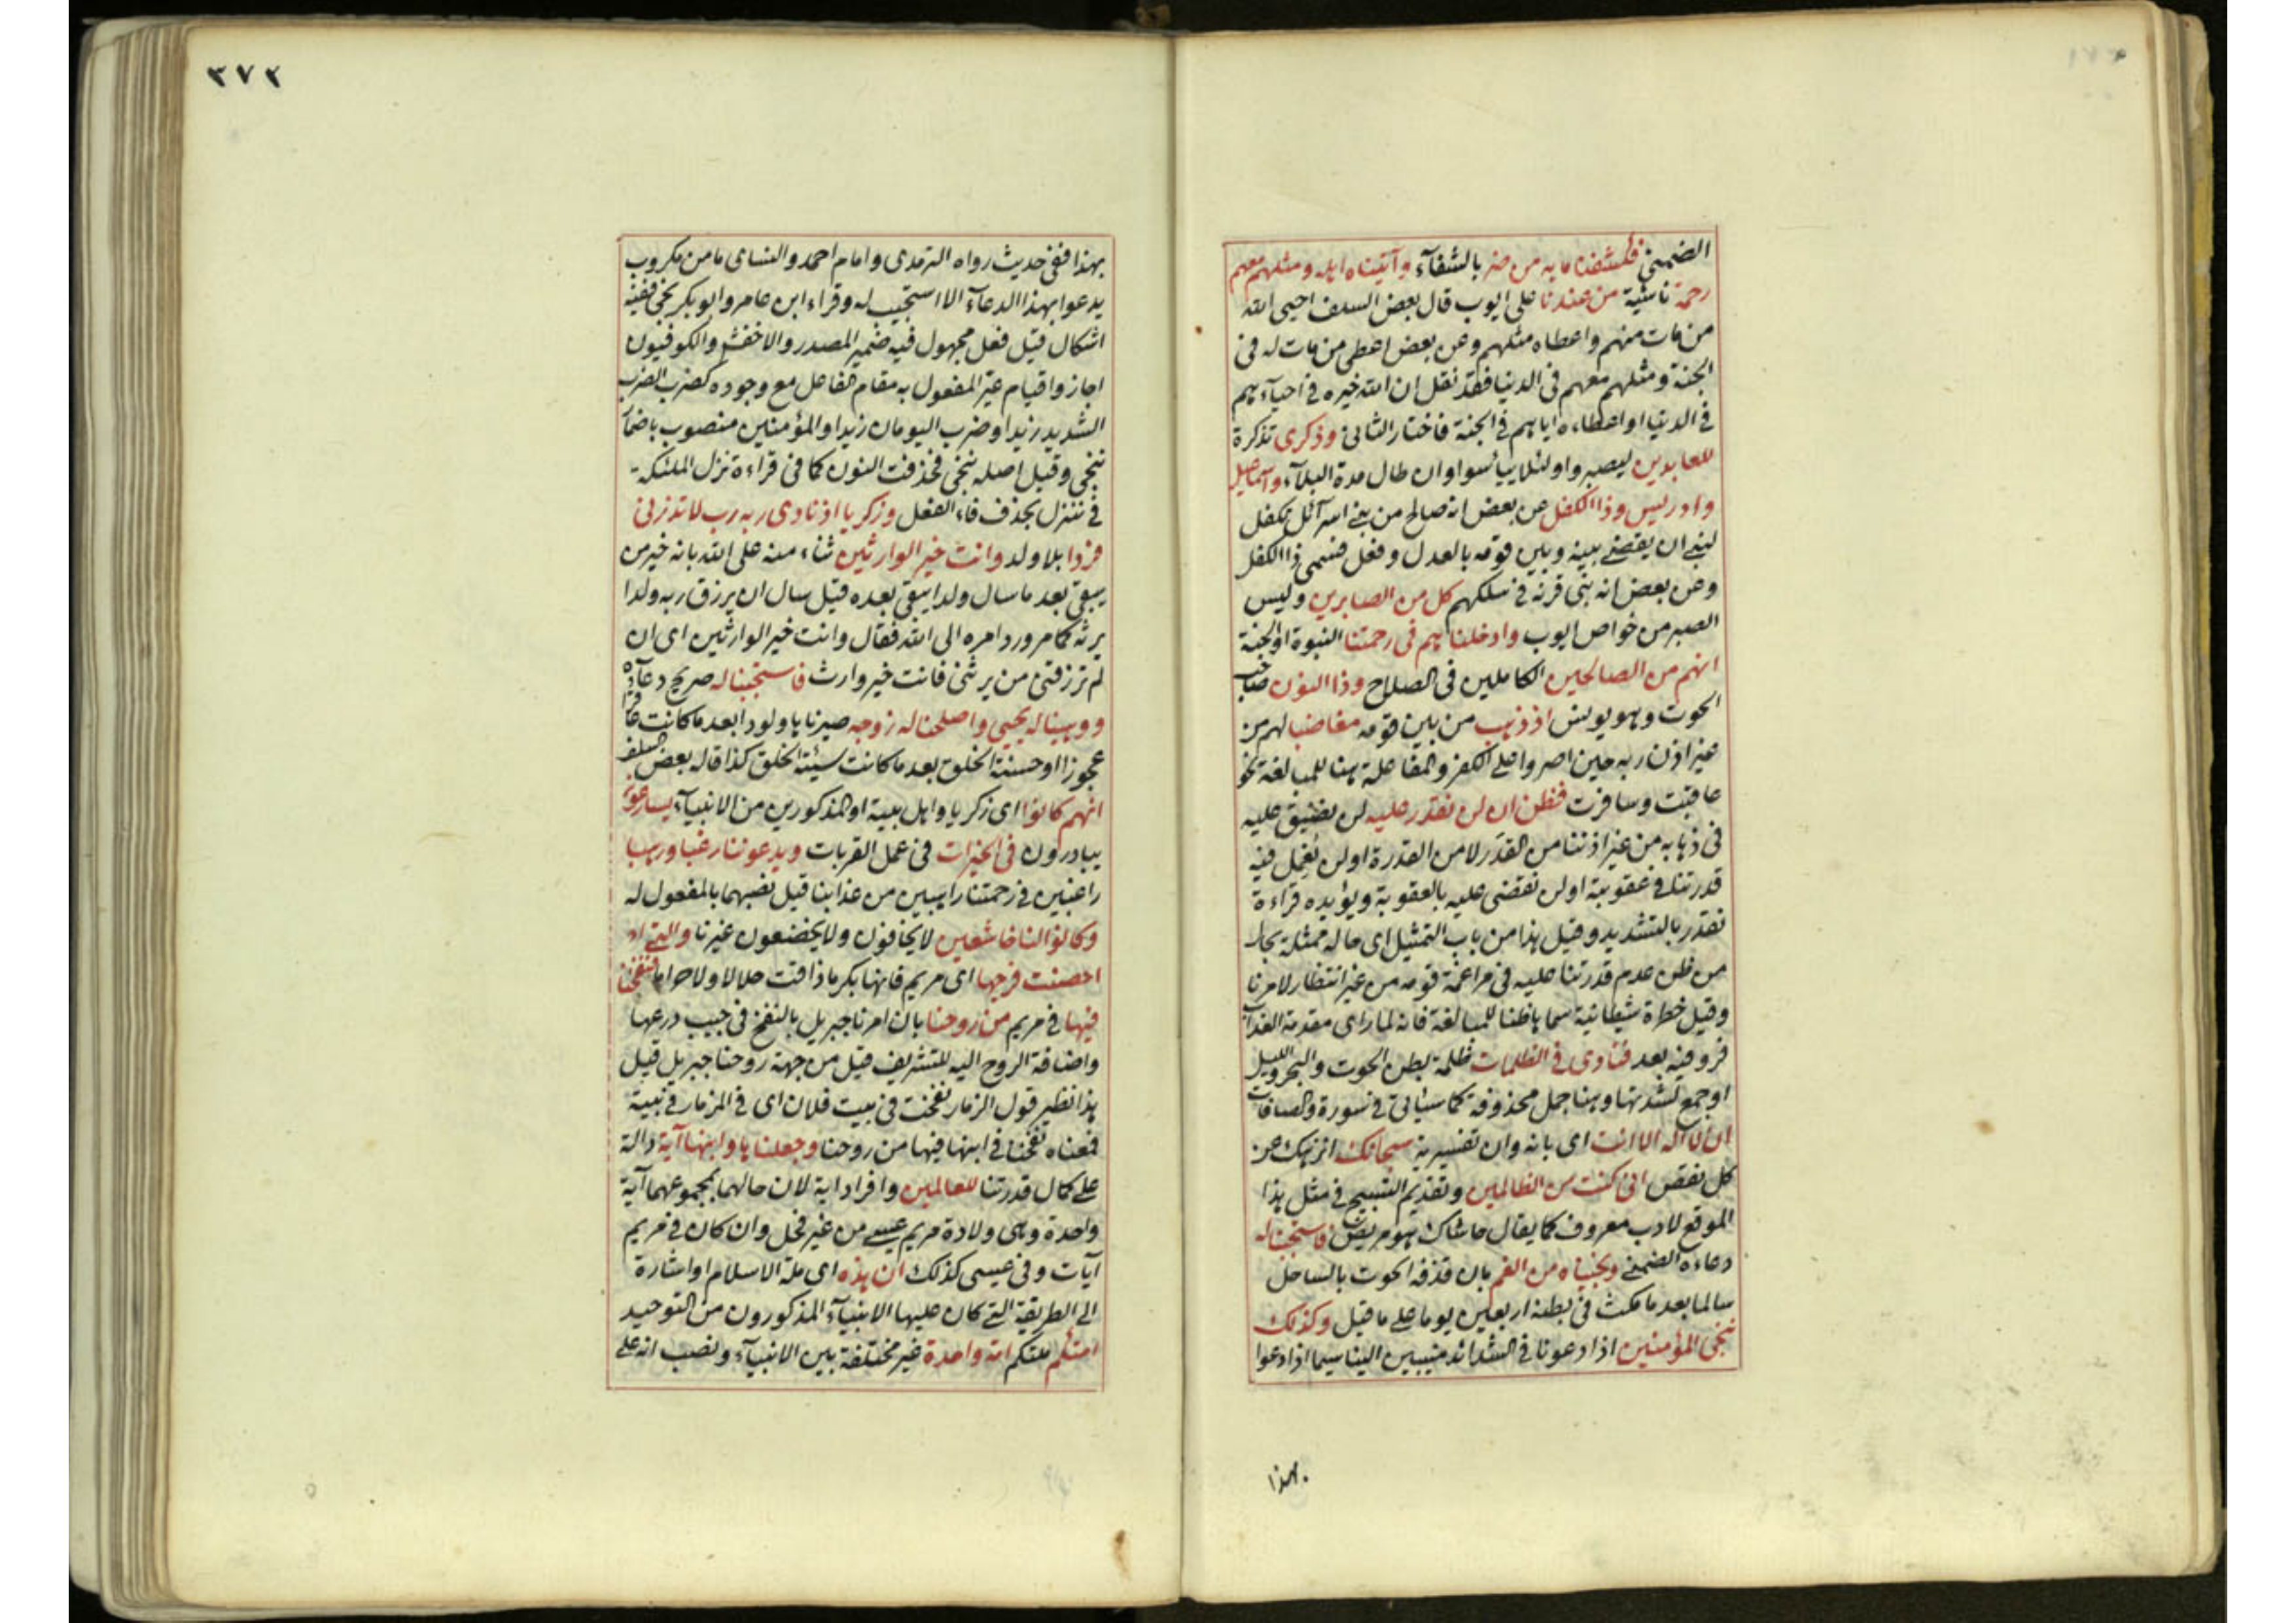 الضمني فكشفنا ما به من ضر بالشفآء وآتيناه اهله ومثلهم معهم
رحمة ناشئة من عندنا على ايوب قال بعض السلف احيى الله
من مات منهم واعطاه مثلهم وعن بعض اعطى من مات له فى
الجنة ومثلهم معهم فى الدنيا فقد نقل ان الله خيره فى احياءهم
فى الدنيا او اعطاءه اياهم فى الجنة فاختار الثانى وذكرى تذكرة
للعابدين ليصبروا ولئلا ييأسوا وان طال مدة البلآء واسماعيل
وادريس وذا الكفل عن بعض انه صالح من بنى اسرآئل تكفل
لنبى ان يقضى بينه وبين قومه بالعدل وفعل فسمى ذا الكفل
وعن بعض انه نبى قرنه فى سلكهم كل من الصابرين وليس
الصبر من خواص ايوب وادخلناهم فى رحمتنا النبوة او الجنة
انهم من الصالحين الكاملين فى الصلاح وذا النون صاحب
الحوت وهو يونس اذ ذهب من بين قومه مغاضبا لهم من
غير اذن ربه حين اصروا على الكفر والمفاعلة هنا للمبالغة نحو
عاقبت وسافرت فظن ان لن نقدر عليه لن نضيق عليه
فى ذهابه من غير اذننا من القدر لا من القدرة او لن نعمل فيه
قدرتنا فى عقوبة او لن نقضى عليه بالعقوبة ويؤيده قراءة
نقدر بالتشديد وقيل هذا من باب التمثيل اى حاله ممثلة بحال
من ظن عدم قدرتنا عليه فى مراغمة قومه من غير انتظار لامرنا
وقيل خطرة شيطانية سماها ظنا للمبالغة فانه لما راى مقدمة العذاب
فروفيه بعد فنادى فى الظلمات ظلمة بطن الحوت والبحر والليل
او جمع لشدتها وهنا جمل محذوفة كما سيأتى فى سورة والصافات
ان لا اله الا انت اى بانه وان تفسيرية سبحانك انزهك عن
كل نقص انى كنت من الظالمين وتقديم التسبيح فى مثل هذا
الموقع لادب معروف كما يقال حاشاك هو مريض فاستجبنا له
دعاءه الضمنى ونجيناه من الغم بان قذفه الحوت بالساحل
سالما بعد ما مكث فى بطنه اربعين يوما على ما قيل وكذلك
ننجى المؤمنين اذا دعونا فى الشدائد منيبين الينا سيما اذا دعوا
بهذا
٣٧٢
بهذا ففى حديث رواه الترمذى وامام احمد والنساى ما من مكروب
يدعوا بهذا الدعآء الا استجيب له وقراء ابن عامر وابو بكر نجى ففيه
اشكال قيل فعل مجهول فيه ضمير المصدر والاخفش والكوفيون
اجازوا قيام غير المفعول به مقام الفاعل مع وجوده كضرب الضرب
الشديد زيدا وضرب اليومان زيدا والمؤمنين منصوب باضمار
ننجى وقيل اصله ننجى فحذفت النون كما فى قراءة نزل الملئكة
فى ننزل بحذف فاء الفعل وزكريا اذ نادى ربه رب لا تذرنى
فردا بلا ولد وانت خير الوارثين ثناء منه على الله بانه خير من
يبقى بعد ما سال ولدا يبقى بعده قيل سال ان يرزق ربه ولدا
يرثه كما مر ورد امره الى الله فقال وانت خير الوارثين اى ان
لم ترزقنى من يرثنى فانت خير وارث فاستجبنا له صريح دعآءه
ووهبنا له يحيى واصلحنا له زوجه صيرناها ولودا بعد ما كانت عاقرا
عجوزا او حسنة الخلق بعد ما كانت سيئة الخلق كذا قاله بعض السلف
انهم كانوا اى زكريا واهل بيته او المذكورين من الانبيآء يسارعون
يبادرون فى الخيرات فى عمل القربات ويدعوننا رغبا ورهبا
راغبين فى رحمتنا راهبين من عذابنا قيل نصبهما بالمفعول له
وكانوا لنا خاشعين لا يخافون ولا يخضعون غيرنا والتى
احصنت فرجها اى مريم فانها بكر ما ذاقت حلالا ولا حراما فنفخنا
فيها فى مريم من روحنا بان امرنا جبريل بالنفخ فى جيب درعها
واضافة الروح اليه للتشريف قيل من جهة روحنا جبريل قيل
هذا نظير قول الزمار نفخت فى بيت فلان اى فى المزمار فى بيته
فمعناه نفخنا فى ابنها فيها من روحنا وجعلناها وابنها آية دالة
على كمال قدرتنا للعالمين وافراد اية لان حالهما بمجموعهما آية
واحدة وهى ولادة مريم عيسى من غير فحل وان كان فى مريم
آيات وفى عيسى كذلك ان هذه اى ملة الاسلام او اشارة
الى الطريقة التى كان عليها الانبيآء المذكورون من التوحيد
امتكم ملتكم امة واحدة غير مختلفة بين الانبيآء ونصب امة على